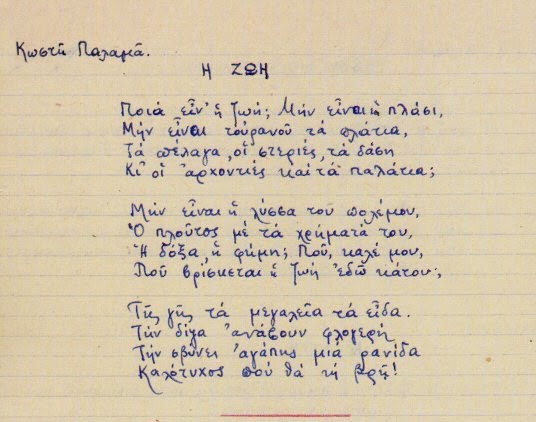 Κωστῆ Παλαμᾶ.
Η ΖΩΗ
Ποιά εἶν' ἡ ζωή; Μήν εἶναι ἡ πλάσι,
Μήν εἶναι τοὐρανοῦ τά πλάτια,
Τά πέλαγα, οἱ στεριές, τά δάση
Κι' οἱ ἀρχοντιές καί τά παλάτια;
Μήν εἶναι ἡ λύσσα του πολέμου,
Ὁ πλοῦτος μέ τά χρήματά του,
Ἡ δόξα, ἡ φήμη; Ποῦ, καλέ μου,
Ποῦ βρίσκεται ἡ ζωή ἐδῶ κάτου;
Τῆς γῆς τά μεγαλεῖα τά εἶδα.
Τήν δίψα ἀνάβουν φλογερή
Τήν σβύνει ἀγάπης μιά ρανίδα
Καλότυχος πού θά τή βρῆ!